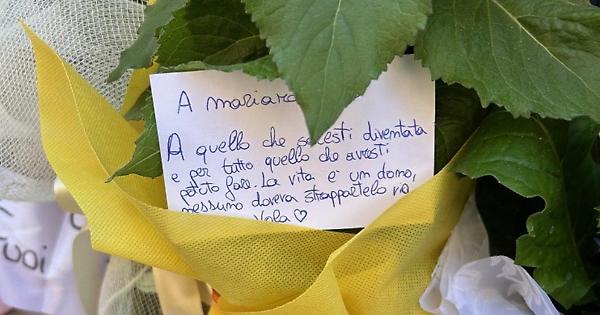 A maria
A quello che saresti diventata
e per tutto quello che avresti
potuto fare. La vita è un dono,
nessuno doveva strappartelo via
Vola ♡
uoi